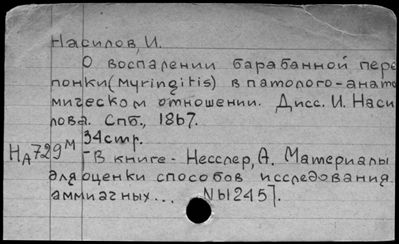 Насилов, И.
О воспалении барабанной пере
понки (myringitis) в патолого-анато
мическом отношении. Дисс. И. Наси
лова. Спб., 1867.
34 стр.
НА729м
[В книге - Несслер, А. Материалы
для оценки способов исследования
аммиачных... №1245].